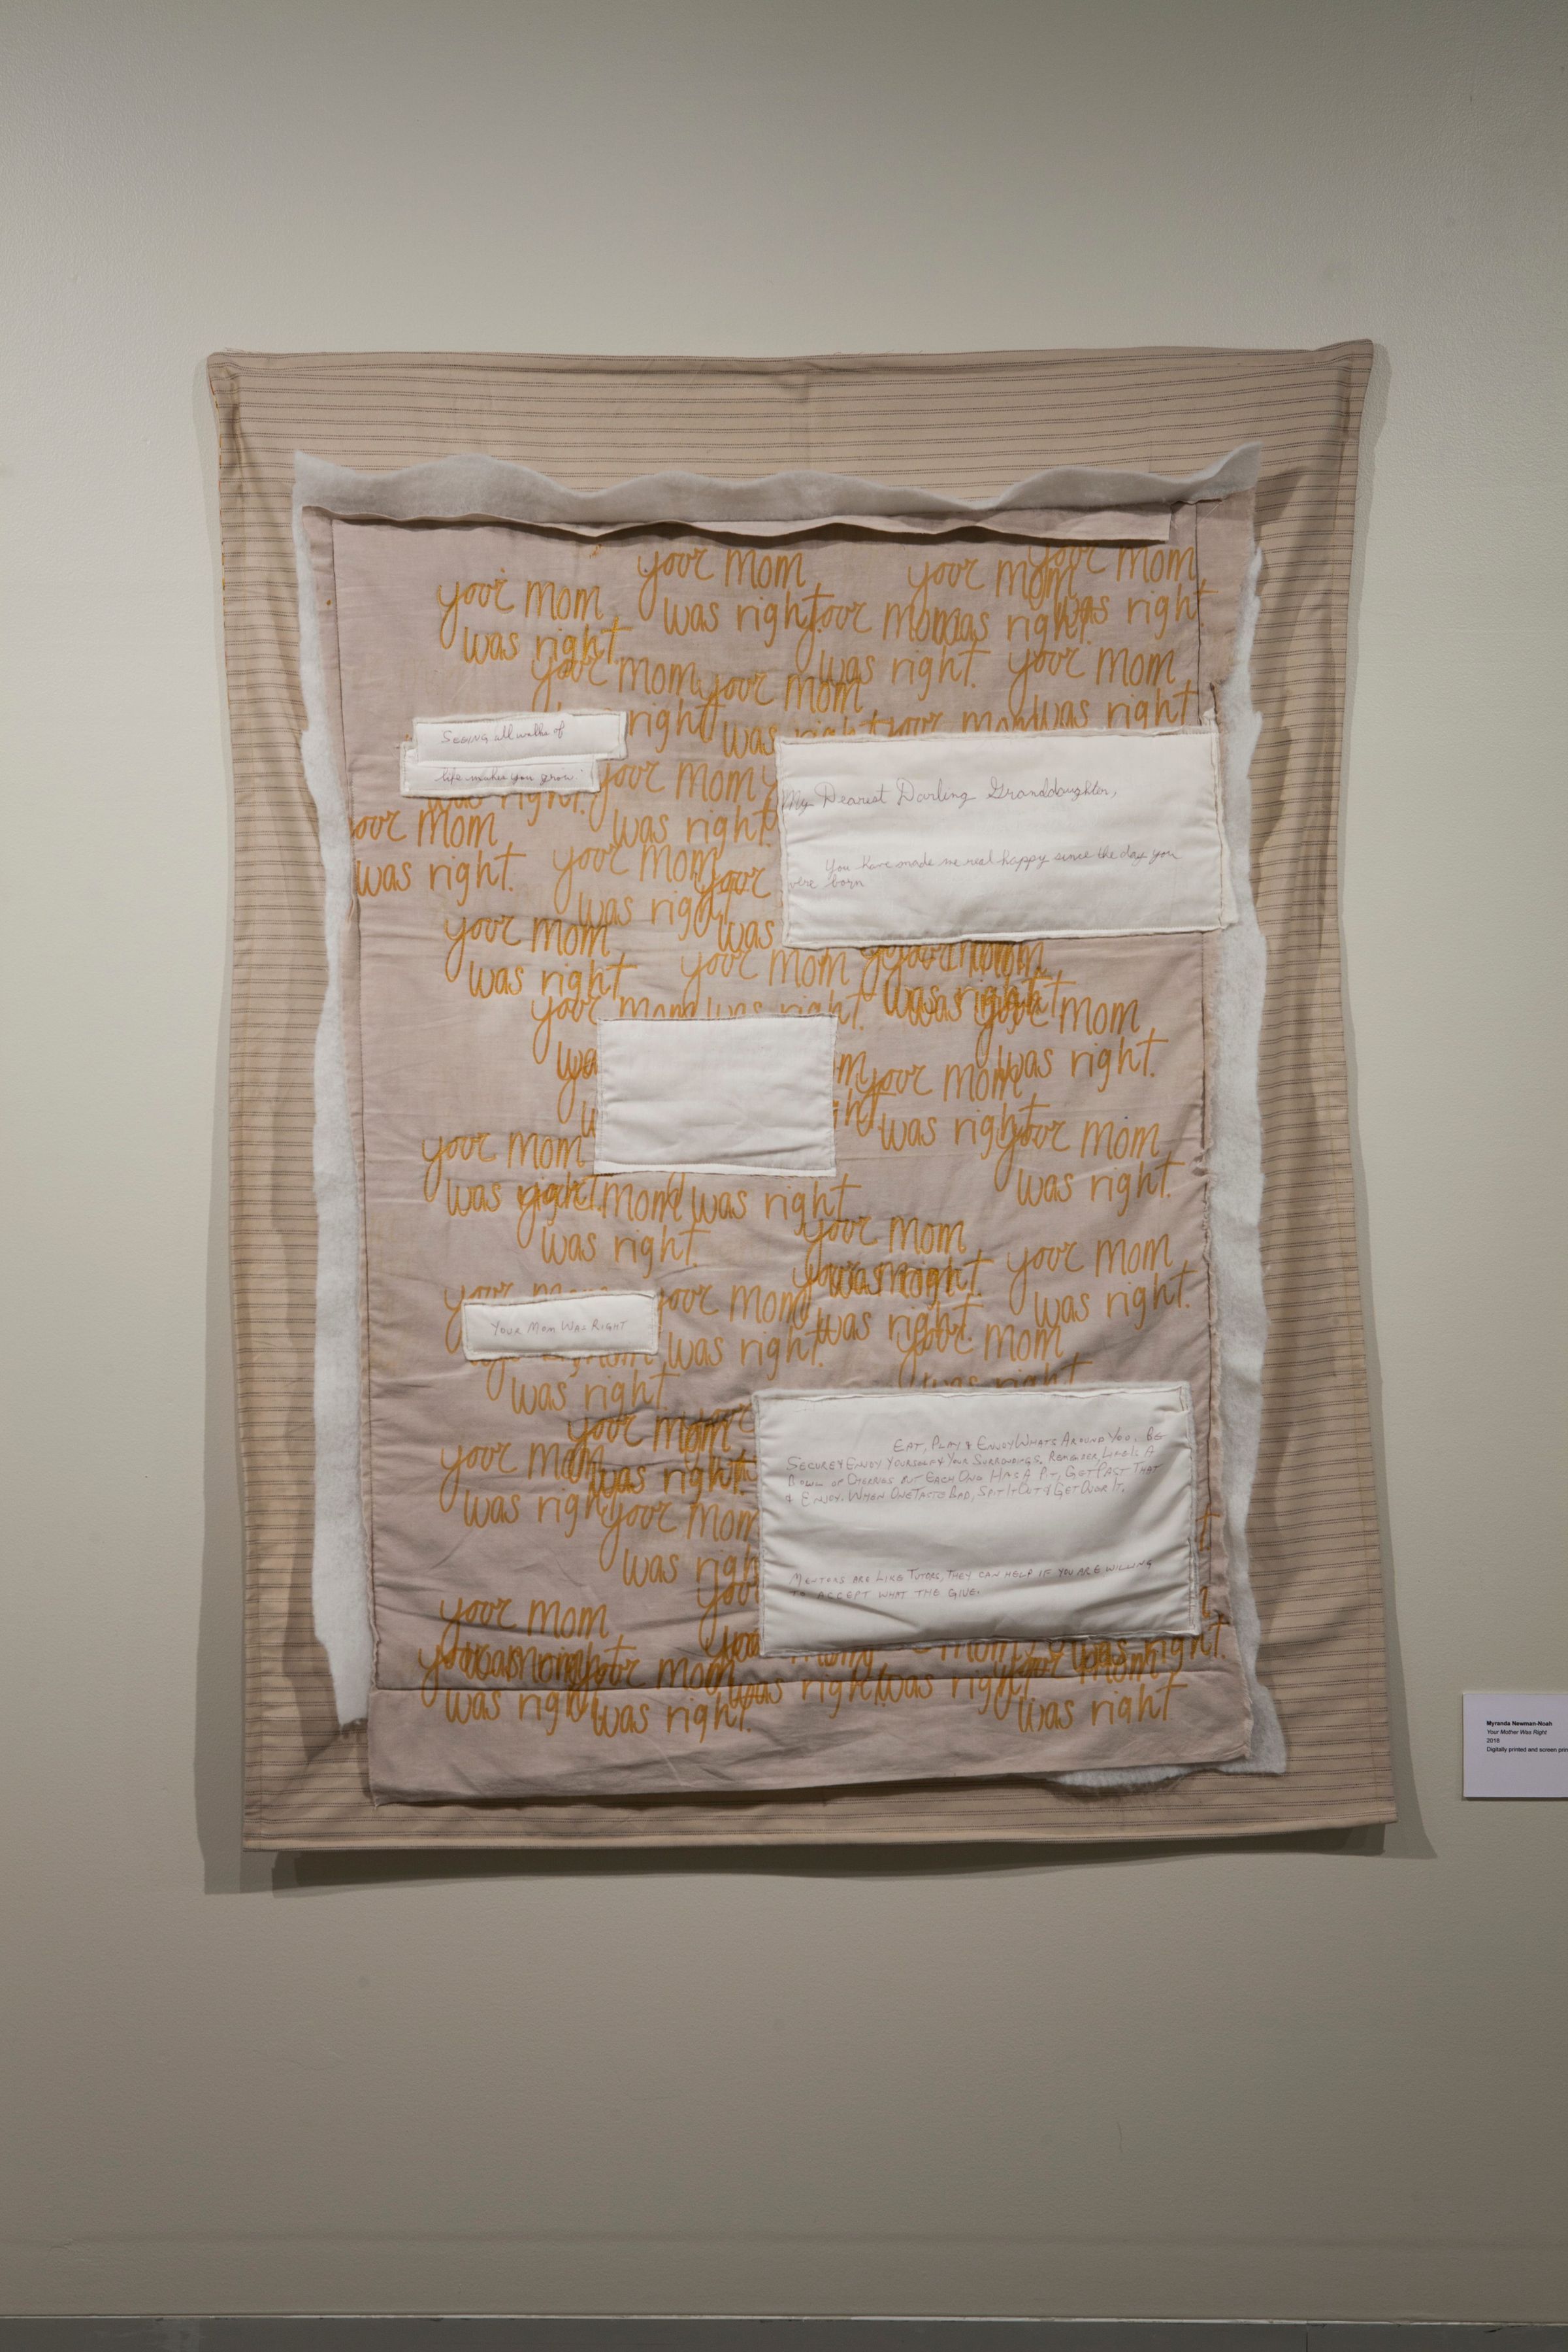 your mom
was right.
your mom
was right.
your mom
was right.
your mom
was right.
your mom
was right.
your mom
was right.
your mom
right
your mom
was right
Seeing all walks of
life makes you grow.
your mom
was right.
My Dearest Darling Granddaughter,
You have made me real happy since the day you
were born
our mom
was right.
your mom
was right
your
was
your mom
was right
your mom
was right.
your mom
was right.
your mom
was right.
your mom
was right
your mom
was right.
your mom
was right.
mom was right
was right.
your mom
was right.
your mom
was right.
your mom
was right.
YOUR MOM WAS RIGHT
your mom
was right.
your mom
was right.
your mom
was right
your mom
was right
EAT, PLAY & ENJOY WHATS AROUND YOU. BE
SECURE & ENJOY YOURSELF & YOUR SURROUNDINGS. REMEMBER, LIFE IS A
BOWL OF CHERRIES BUT EACH ONE HAS A PIT, GET PAST THAT
& ENJOY. WHEN ONE TASTE BAD, SPIT IT OUT & GET OVER IT.
MENTORS ARE LIKE TUTORS, THEY CAN HELP IF YOU ARE WILLING
TO ACCEPT WHAT THE GIVE.
your mom
was righ
your mom
was right
your mom
was right.
was right
was right.
Myranda Newman-Noah
Your Mother Was Right
2018
Digitally printed and screen prin